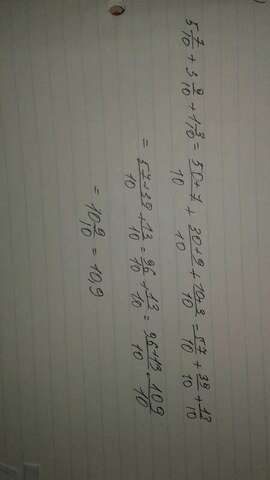 5 7/10 + 3 9/10 + 1 3/10 = (50+7)/10 + (30+9)/10 + (10+3)/10 = 57/10 + 39/10 + 13/10
= (57+39)/10 + 13/10 = 96/10 + 13/10 = (96+13)/10 = 109/10
= 10 9/10 = 10,9